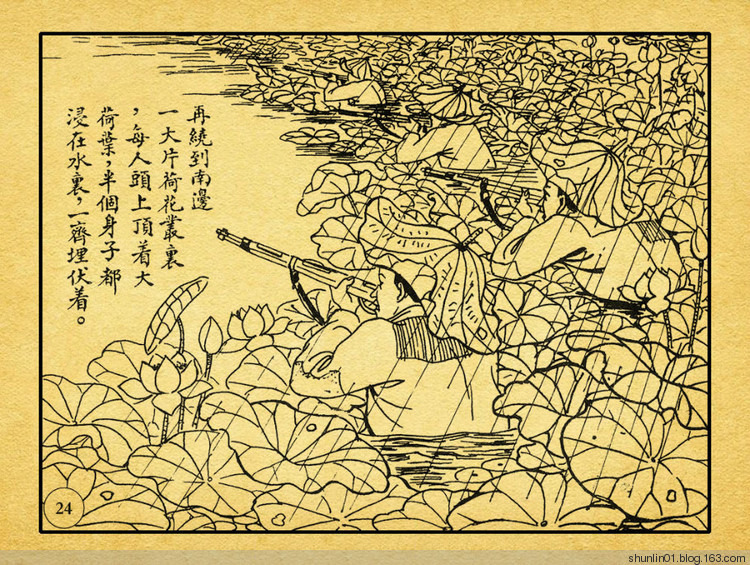 再繞到南邊
一大片荷花叢裏
，每人頭上頂着大
荷葉，半個身子都
浸在水裏，一齊埋伏着。
24
shunlin01.blog.163.com